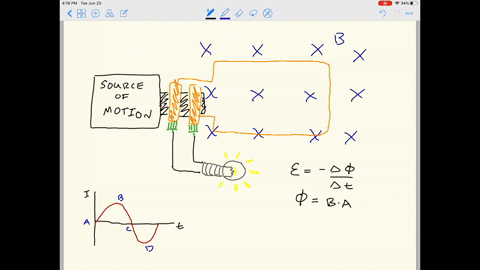 4:16 PM Tue Jun 23
34%
B
SOURCE
OF
MOTION
ε = - ΔΦ/Δt
Φ = B·A
I
B
A
C
t
D